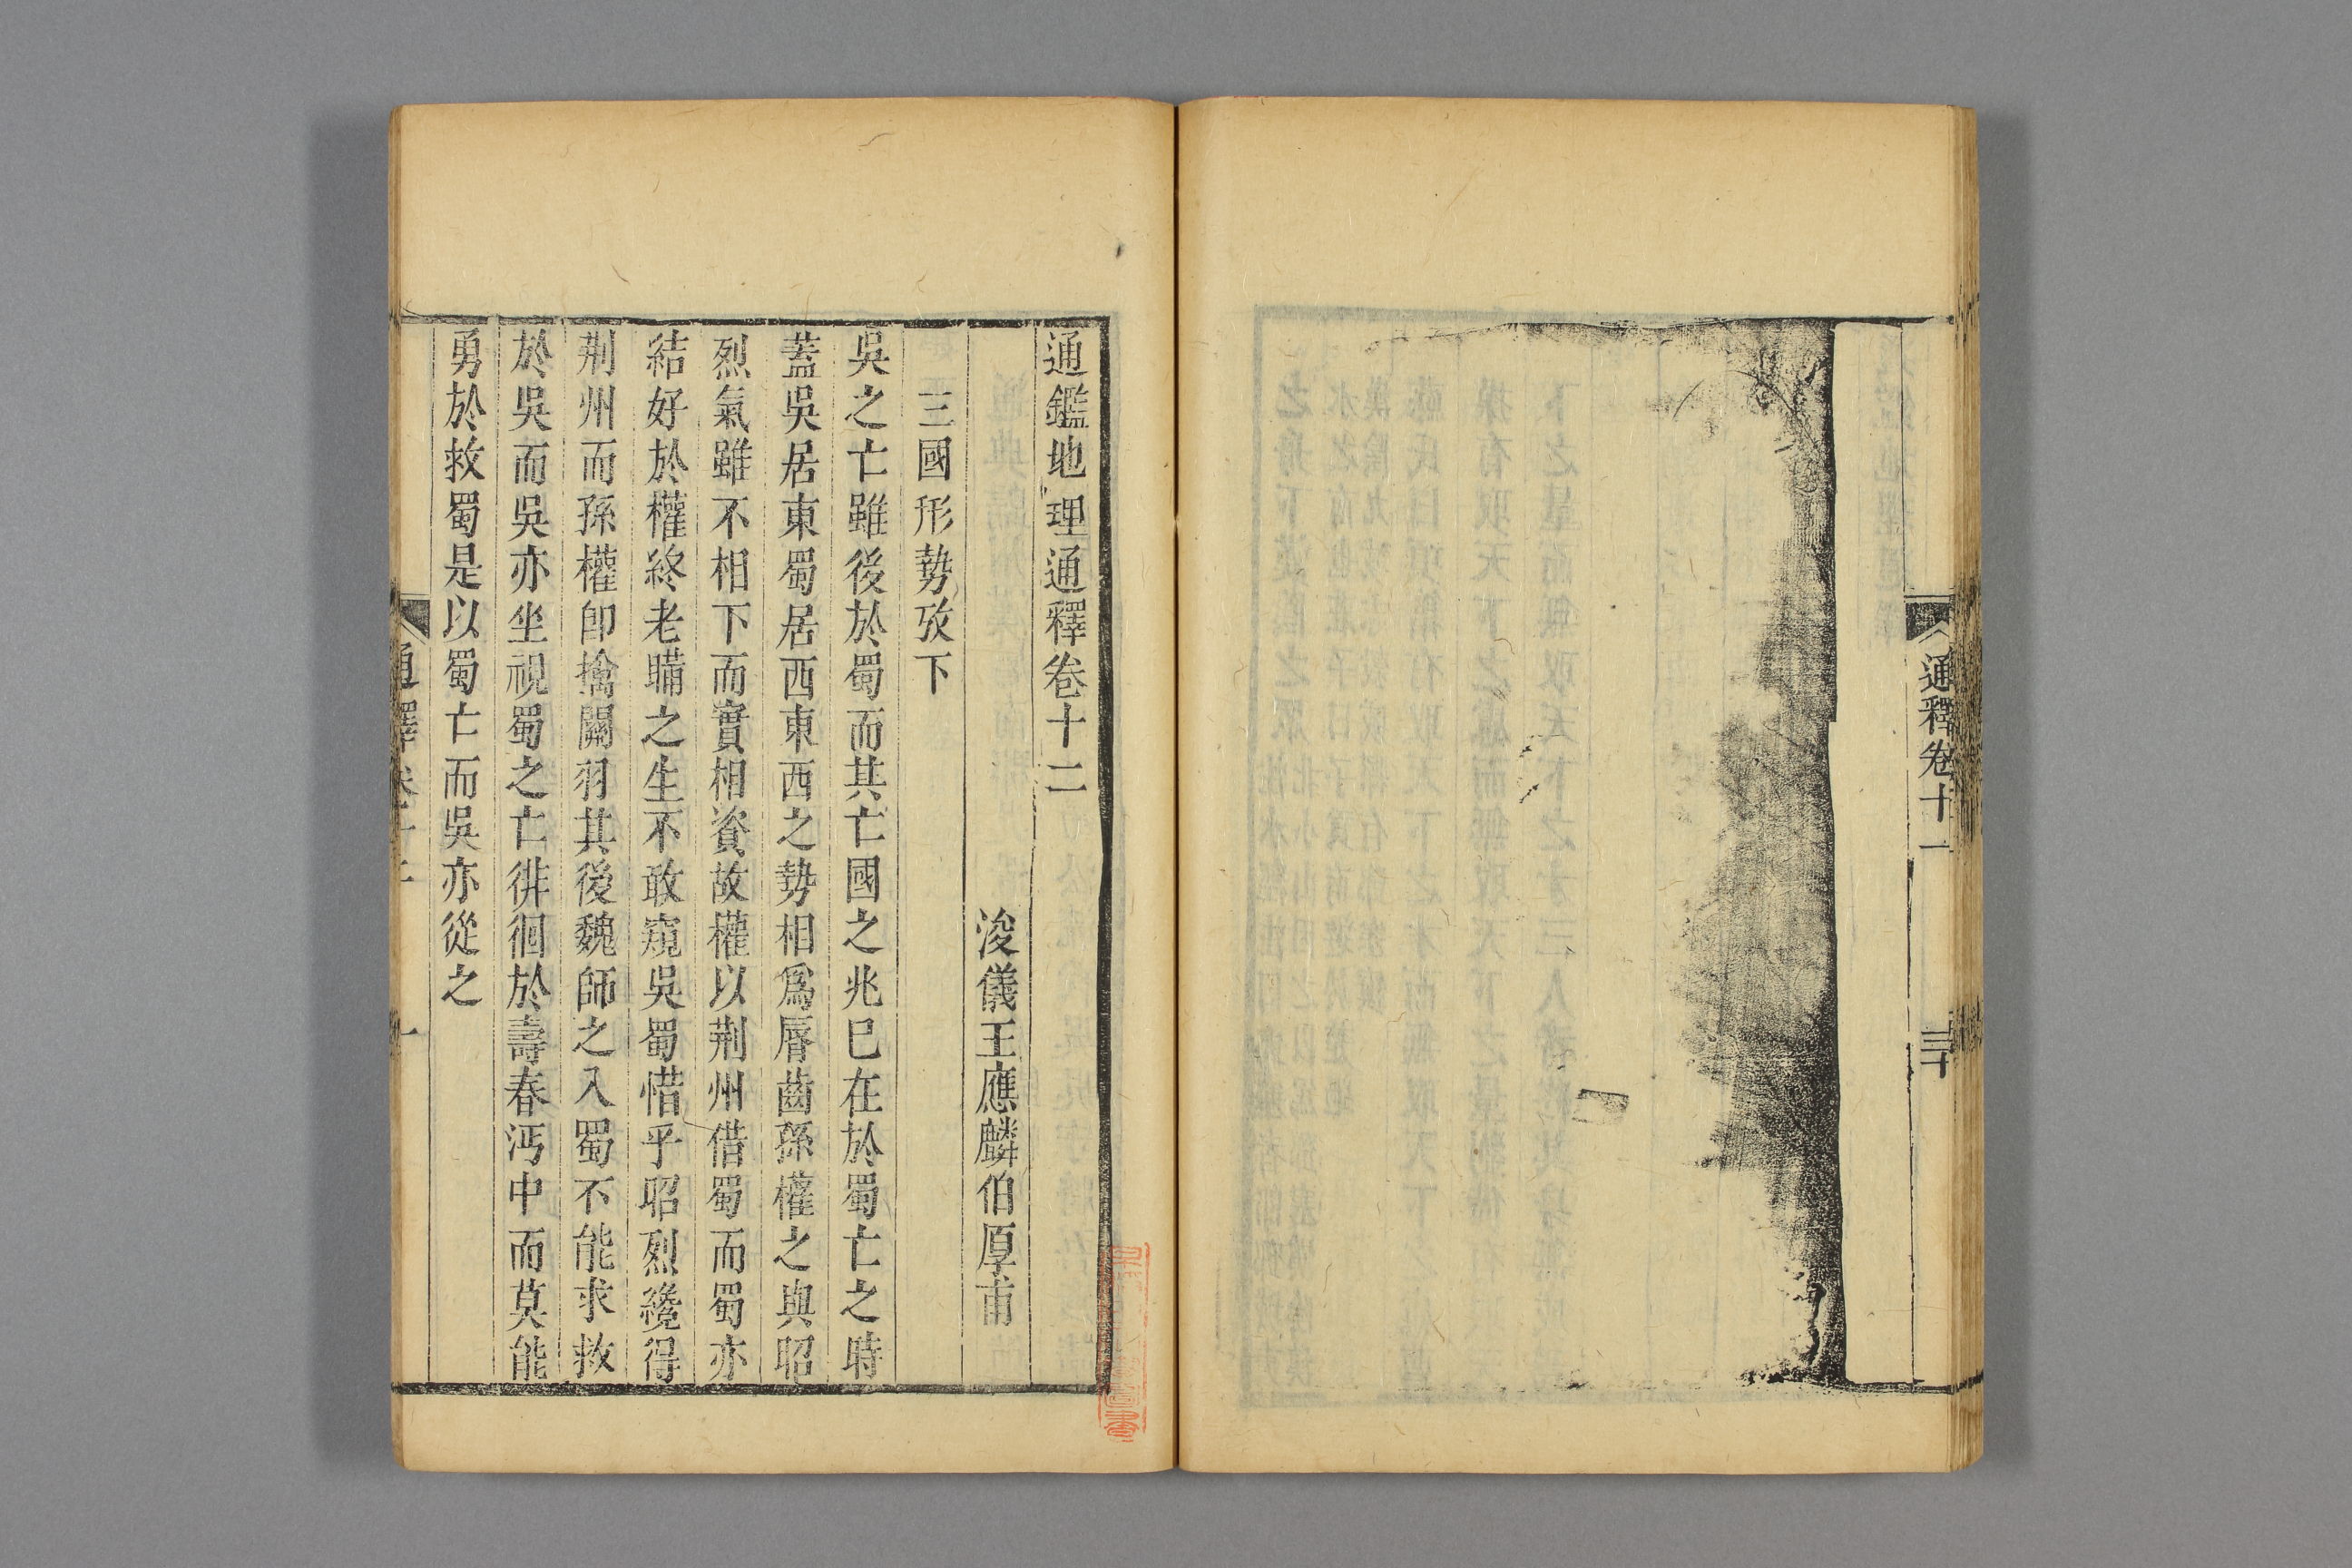 通釋卷十一
三十
通鑑地理通釋卷十二
浚儀王應麟伯厚甫
三國形勢攷下
吳之亡雖後於蜀而其亡國之兆巳在於蜀亡之時
蓋吳居東蜀居西東西之勢相爲脣齒孫權之與昭
烈氣雖不相下而實相資故權以荆州借蜀而蜀亦
結好於權終老瞞之生不敢窺吳蜀惜乎昭烈纔得
荆州而孫權卽擒關羽其後魏師之入蜀不能求救
於吳而吳亦坐視蜀之亡徘徊於壽春沔中而莫能
勇於救蜀是以蜀亡而吳亦從之
通釋卷十二
一